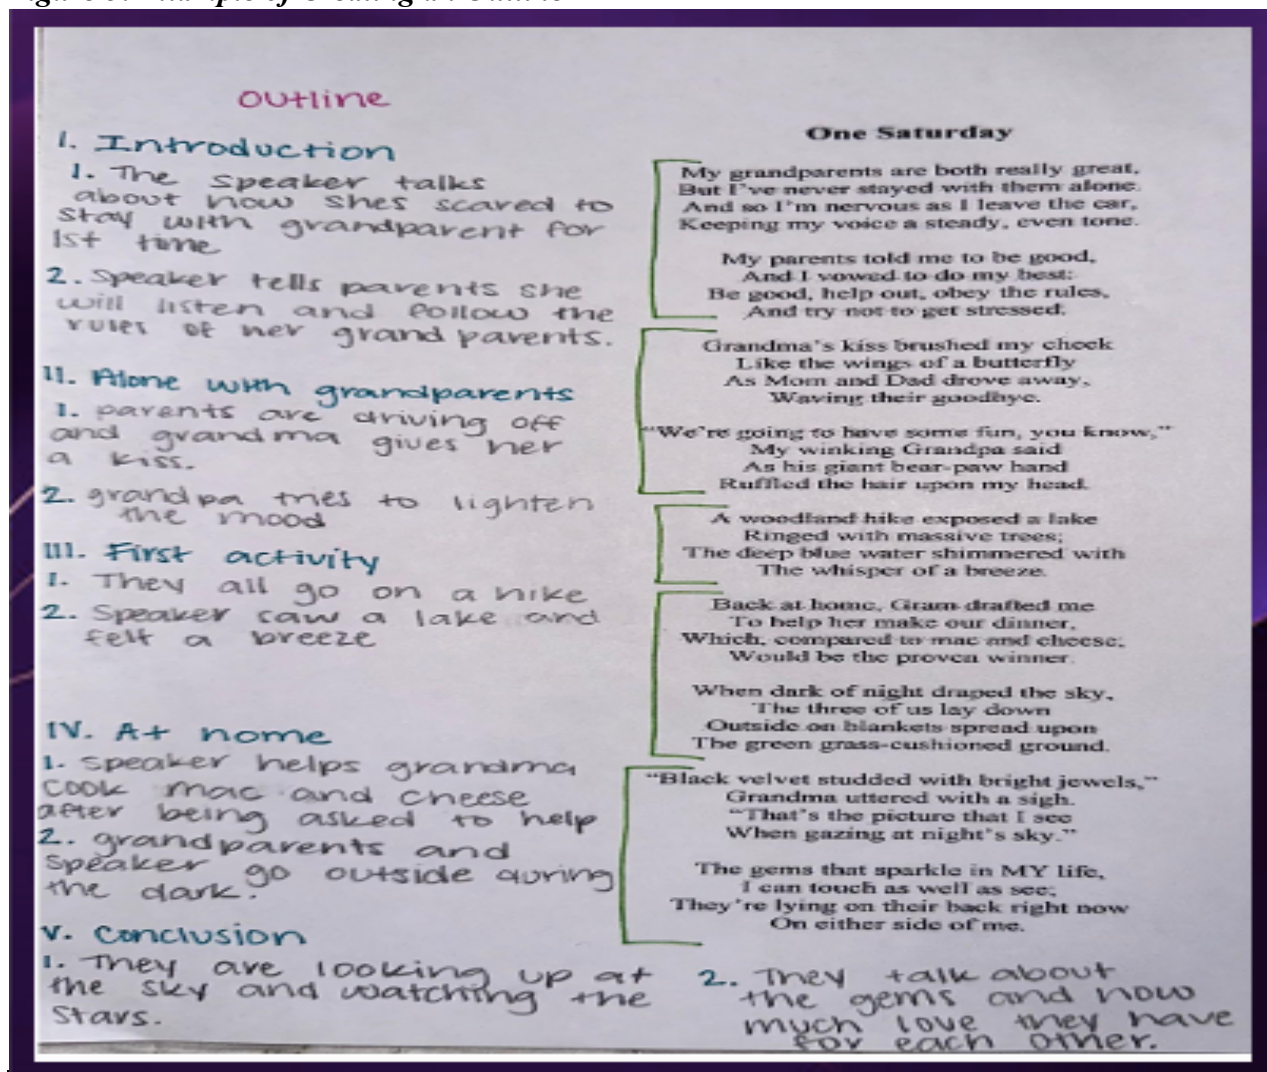 Outline
I. Introduction
1. The speaker talks
about how shes scared to
stay with grandparent for
1st time
2. Speaker tells parents she
will listen and follow the
rules of her grand parents.
II. Alone with grandparents
1. parents are driving off
and grandma gives her
a kiss.
2. grandpa tries to lighten
the mood
III. First activity
1. They all go on a hike
2. Speaker saw a lake and
felt a breeze
IV. At home
1. Speaker helps grandma
cook mac and cheese
after being asked to help
2. grandparents and
speaker go outside during
the dark.
V. Conclusion
1. They are looking up at
the sky and watching the
stars.
One Saturday
My grandparents are both really great,
But I've never stayed with them alone.
And so I'm nervous as I leave the car,
Keeping my voice a steady, even tone.
My parents told me to be good,
And I vowed to do my best:
Be good, help out, obey the rules,
And try not to get stressed.
Grandma's kiss brushed my cheek
Like the wings of a butterfly
As Mom and Dad drove away,
Waving their goodbye.
"We're going to have some fun, you know,"
My winking Grandpa said
As his giant bear-paw hand
Ruffled the hair upon my head.
A woodland hike exposed a lake
Ringed with massive trees;
The deep blue water shimmered with
The whisper of a breeze.
Back at home, Gram drafted me
To help her make our dinner,
Which, compared to mac and cheese,
Would be the proven winner.
When dark of night draped the sky,
The three of us lay down
Outside on blankets spread upon
The green grass-cushioned ground.
"Black velvet studded with bright jewels,"
Grandma uttered with a sigh.
"That's the picture that I see
When gazing at night's sky."
The gems that sparkle in MY life,
I can touch as well as see;
They're lying on their back right now
On either side of me.
2. They talk about
the gems and how
much love they have
for each other.